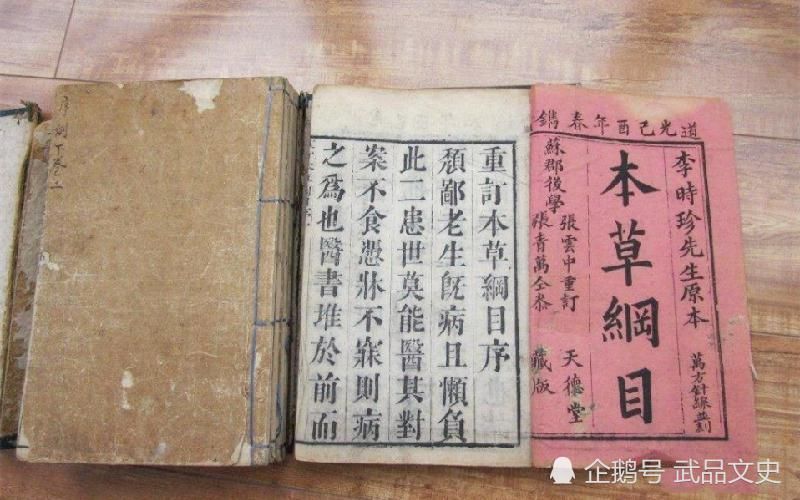 道光己酉年春鐫
李時珍先生原本
萬方針線並刻
本草綱目
蘇郡後學
張雲中重訂
張青萬仝參
天德堂
藏版
重訂本草綱目序
頹鄙老生既病且懶負
此二患世莫能醫其對
案不食憑牀不寐則病
之爲也醫書堆於前而
企鹅号 武品文史